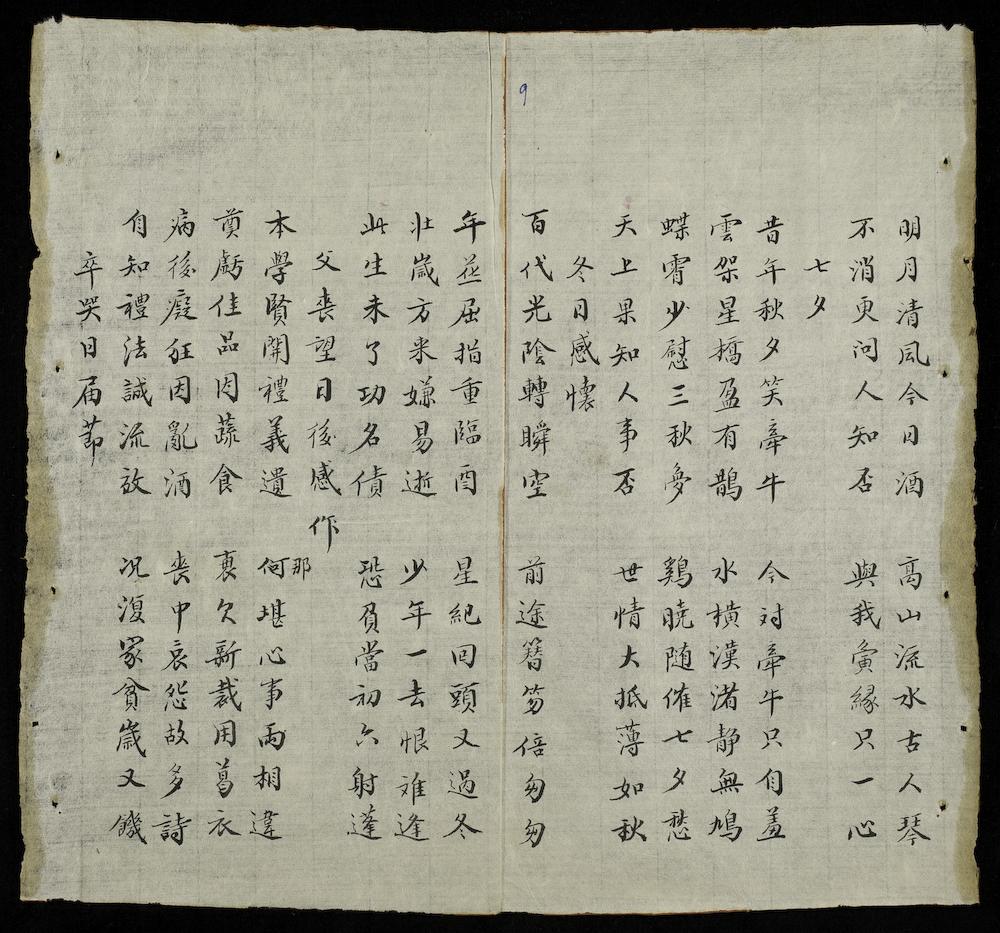 9
明月清風今日酒 高山流水古人琴
不消更问人知否 與我夤縁只一心
七夕
昔年秋夕笑牽牛 今対牽牛只自羞
雲架星橋盈有鵲 水横漢渚静無鳩
蝶霄少慰三秋夢 鷄曉随催七夕愁
天上果知人事否 世情大抵薄如秋
冬日感懷
百代光陰轉瞬空 前途簪笏倍匆匆
年茲屈指重臨酉 星紀回頭又過冬
壯歳方来嫌易逝 少年一去恨难逢
此生未了功名債 恐負當初六射蓬
父喪望日後感作
本學賢開禮義遺 那何堪心事両相違
奠虧佳品因蔬食 裹欠新裁用葛衣
病後癡狂因亂酒 喪中哀怨故多詩
自知禮法誠流放 况復家貧歳又饑
卒哭日届節